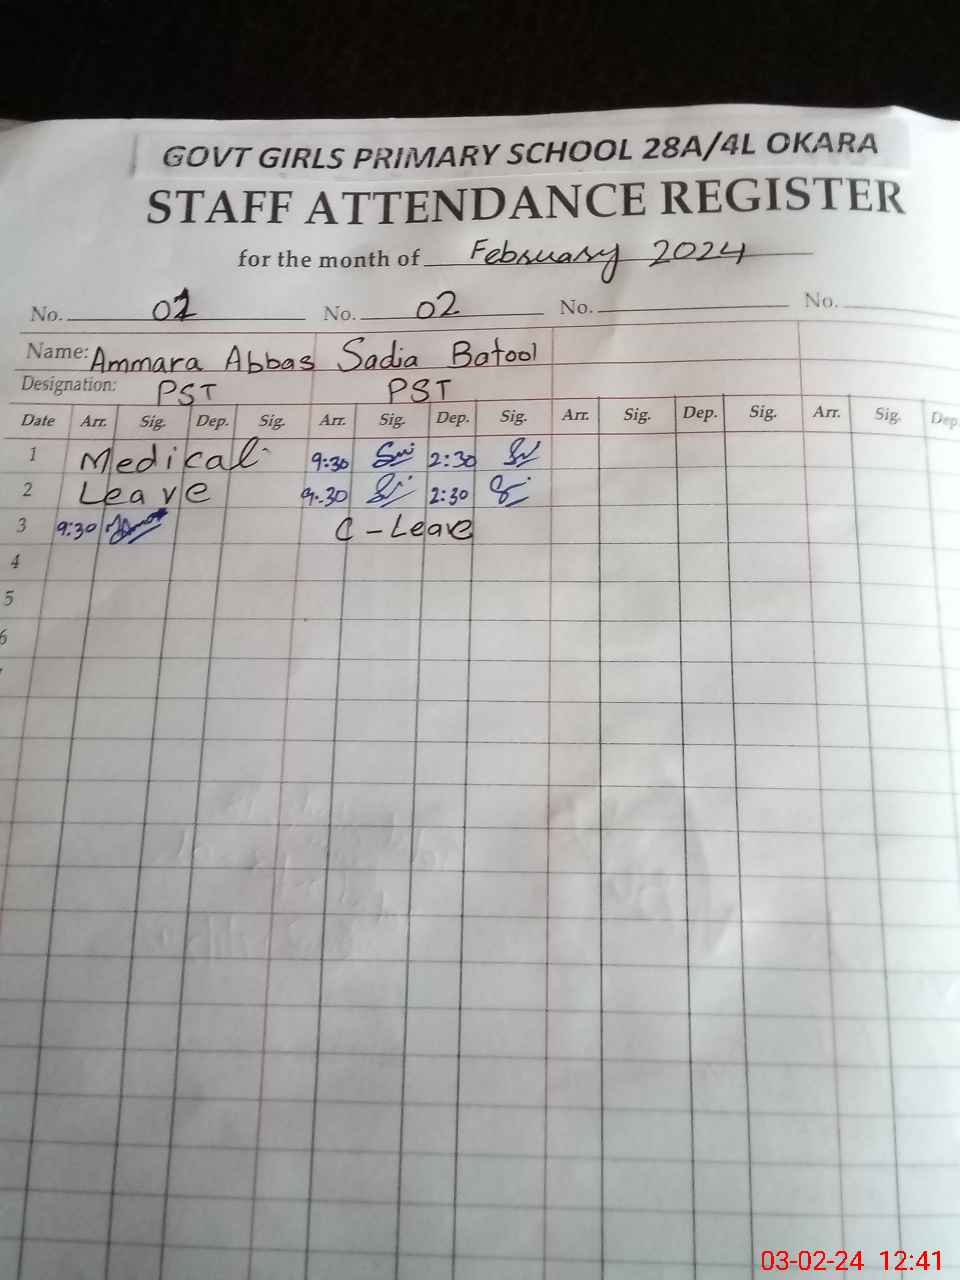 GOVT GIRLS PRIMARY SCHOOL 28A/4L OKARA
STAFF ATTENDANCE REGISTER
for the month of February 2024
No. 01 No. 02 No. No.
Name: Ammara Abbas Sadia Batool
Designation: PST PST
Date Arr. Sig. Dep. Sig. Arr. Sig. Dep. Sig. Arr. Sig. Dep. Sig. Arr. Sig. Dep.
1 Medical 9:30 2:30
2 Leave 9:30 2:30
3 9:30 C-Leave
4
5
6
03-02-24 12:41